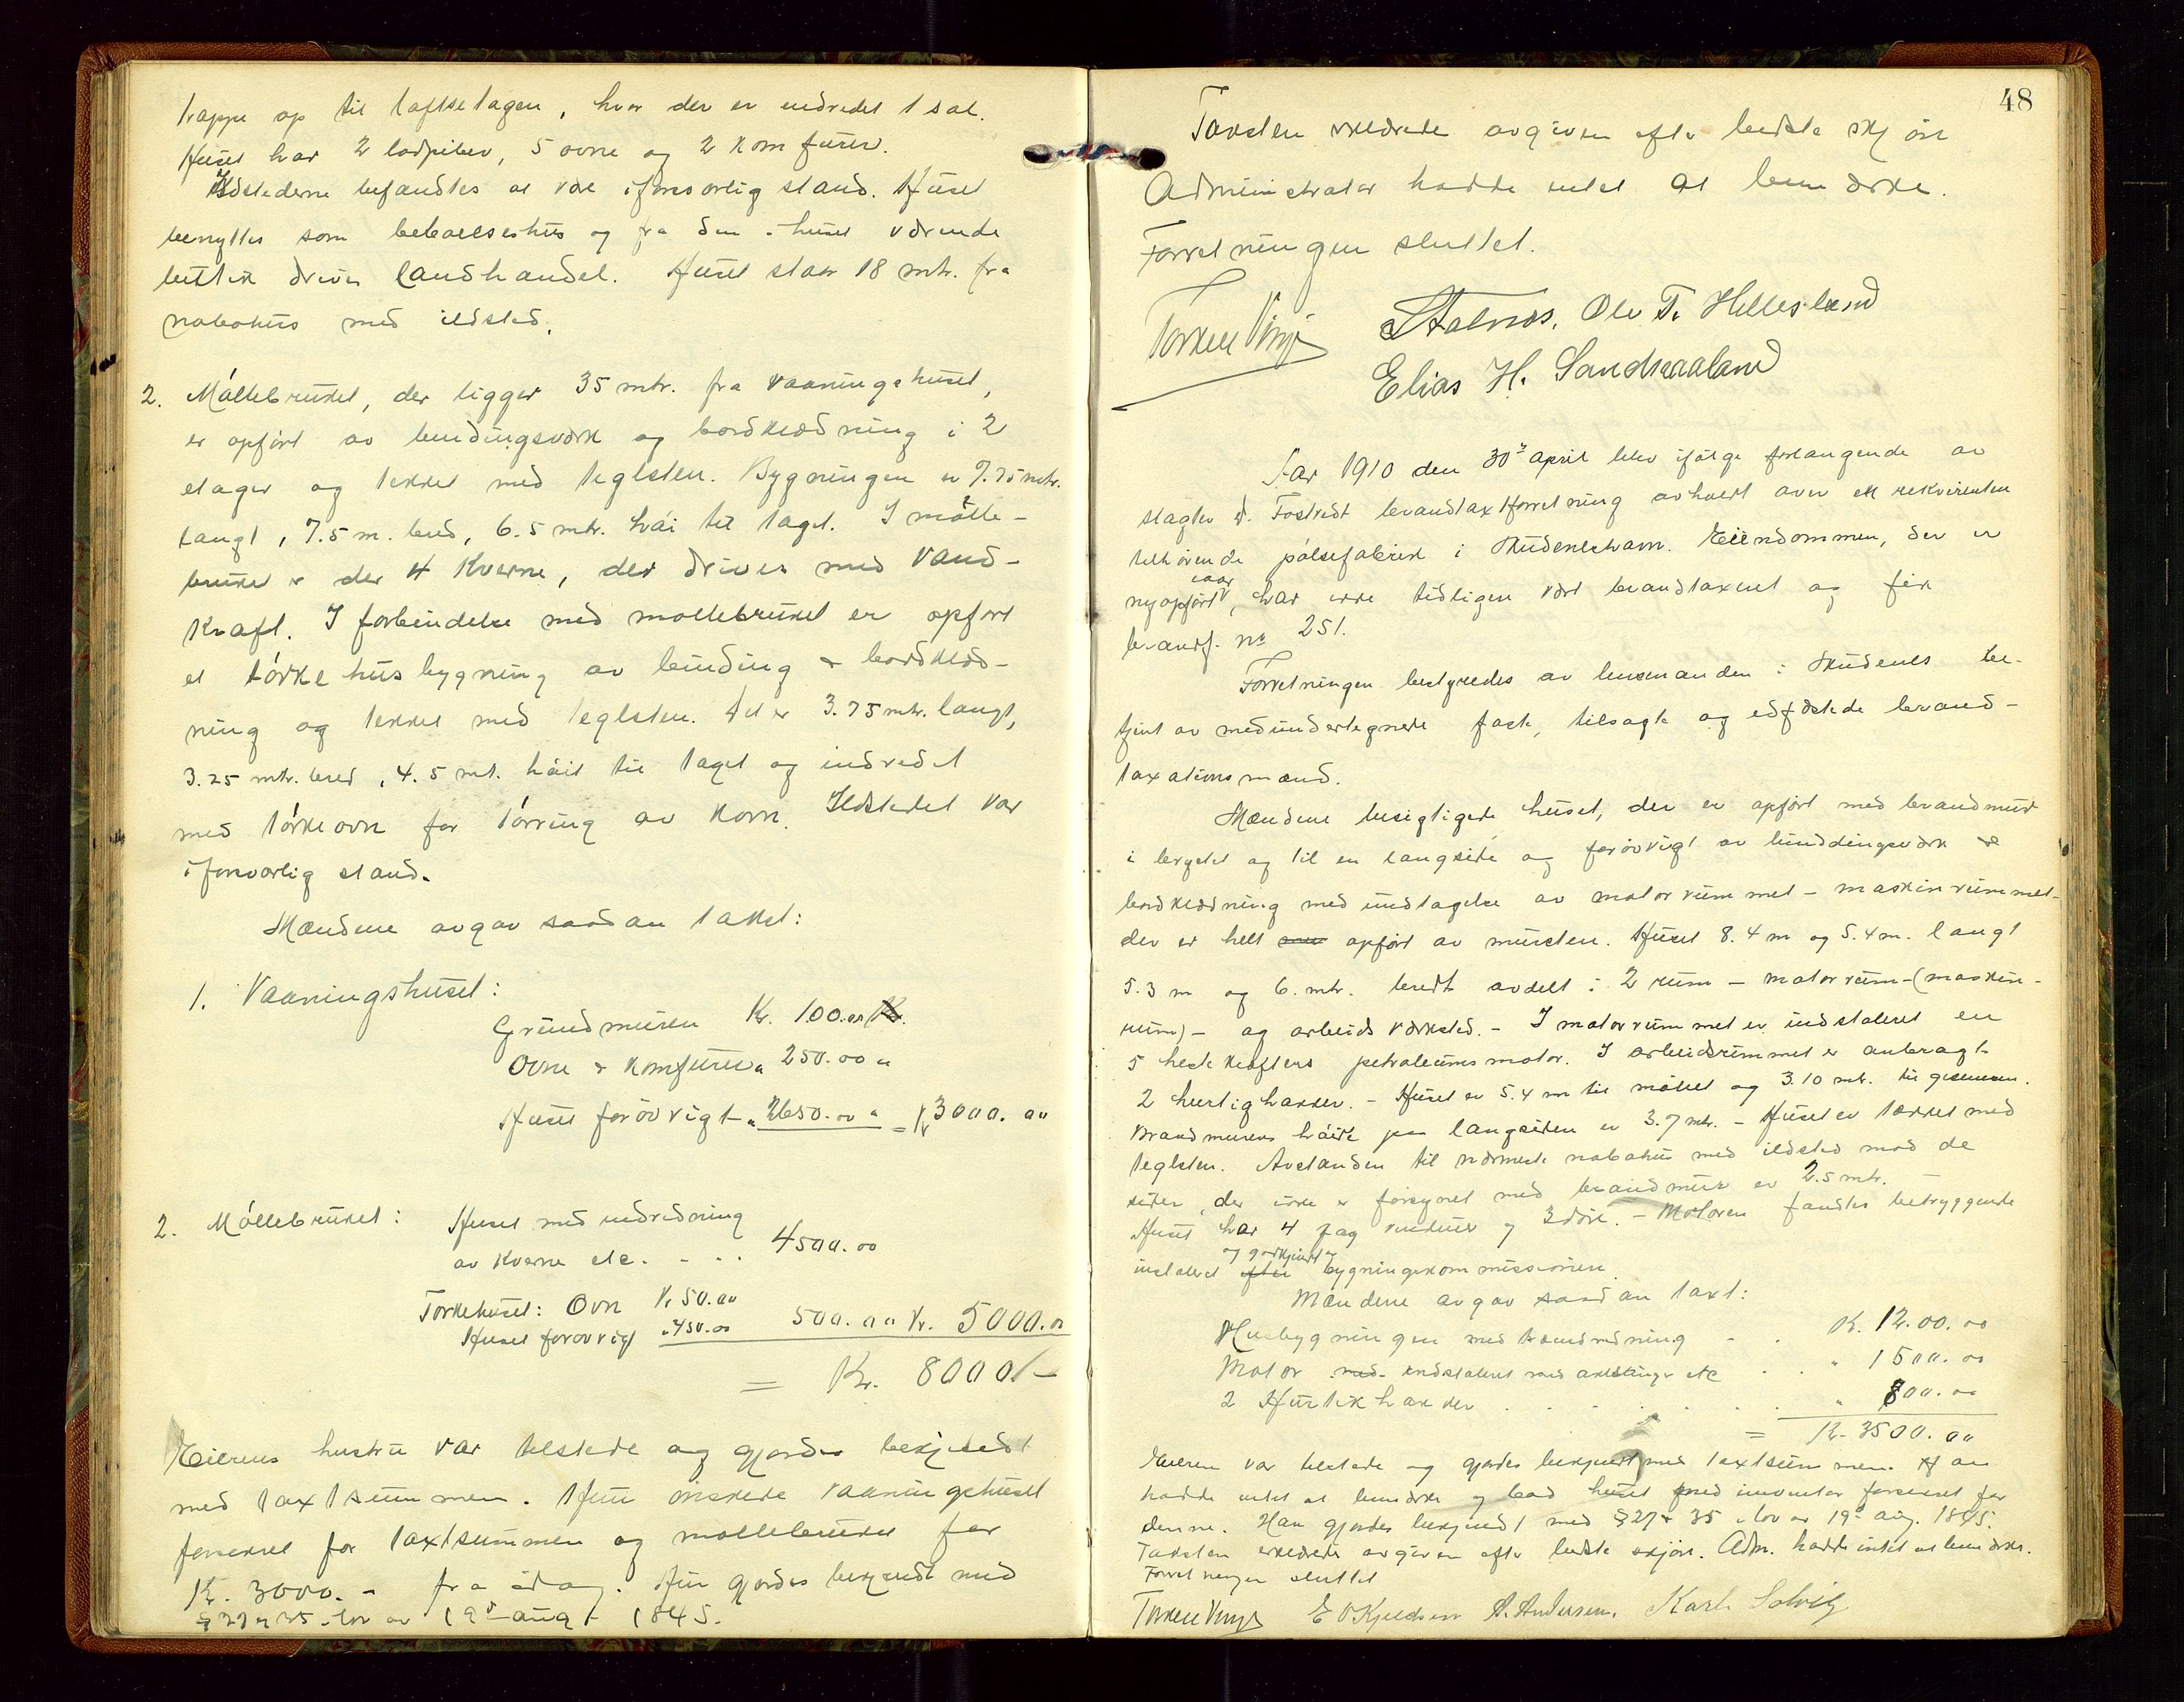 trappe op til loftsetagen, hvor der er indredet 1 sal.
Huset har 2 ladpiber, 5 ovne og 2 komfurer.
Ildstederne befandtes at være i forsvarlig stand. Huset
benyttes som beboelseshus og fra den i huset værende
butik drives landhandel. Huset staar 18 mtr. fra
nabohus med ildsted.
2. Møllebruket, der ligger 35 mtr. fra vaaningshuset,
er opført av bindingsverk og bordklædning i 2
etager og tekket med teglsten. Bygningen er 7.75 mtr.
langt, 7.5 m. bred, 6.5 mtr. høi til taget. I mølle-
bruket er der 4 Kverne, der drives med vand-
kraft. I forbindelse med møllebruket er opført
et tørkehusbygning av binding & bordklæd-
ning og tekket med teglsten. Det er 3.75 mtr. langt,
3.25 mtr. bred, 4.5 mt. høit til taget og indredet
med tørkeovn for tørring av korn. Ildstedet var
i forsvarlig stand.
Mændene avgav saadan takst:
1. Vaaningshuset:
Grundmuren Kr. 100.00
Ovne & Komfurer " 250.00 "
Huset forøvrigt " 2650.00 " = Kr 3000.00
2. Møllebruket: Huset med indredning
av kverne etc. - - - 4500.00
Tørkehuset: Ovn Kr 50.00
Huset forøvrigt " 450.00 500.00 Kr. 5000.00
= Kr. 8000/-
Eierens hustru var tilstede og gjordes bekjendt
med taxtsummen. Hun ønskede vaaningshuset
forsikret for taxtsummen og møllebruket for
Kr. 3000.- fra idag. Hun gjordes bekjendt med
§ 27 & 35 i lov av 19de aug. 1845.
48
Taksten erklærede avgiven efter bedste skjøn
Administrator hadde intet at bemærke.
Forretningen sluttet.
Torkell Vinje Stalnos. Ole T. Hillesland
Elias H. Sandhaaland
Aar 1910 den 30te april blev ifølge forlangende av
slagter Fostvedt brandtaxtforretning avholdt over en rekvirenten
tilhørende pølsefabrik i Skudeneshavn. Eiendommen, der er
nyopført iaar, har ikke tidligere vært brandtaxeret og fik
brandf. No 251.
Forretningen bestyredes av lensmanden i Skudenes be-
tjent av medundertegnede faste, tilsagte og edfæstede brand-
taxationsmænd.
Mændene besigtigede huset, der er opført med brandmur
i brystet og til en langside og forøvrigt av binddingsværk &
bordklædning med undtagelse av motorrummet - maskinrummet-
der er helt opført av mursten. Huset 8.4 m og 5.4 m. langt
5.3 m og 6. mtr. bredt avdelt i 2 rum - motorrum - (maskin-
rum) - og arbeidsværksted. - I motorrummet er indstaleret en
5 hestekræfters petroleumsmotor. I arbeidsrummet er anbragt
2 hurtighakker. - Huset er 5.4 m til mønet og 3.10 mtr. til gesimsen.
Brandmurens høide paa langsiden er 3.7 mtr. - Huset er tækket med
teglsten. Avstanden til nærmeste nabohus med ildsted mod de
sider, der ikke er forsynet med brandmur er 2.5 mtr. -
Huset har 4 fag vinduer og 3 døre. - Motoren fandtes betryggende
instaleret og godkjendt av bygningskommissionen.
Mændene avgav saadan taxt:
Husbygningen med indredning - . Kr. 12.00.00
Motor indstaleret med akslinger etc . " 1500.00
2 Hurtikhakker . . . . . . " 800.00
= Kr. 3500.00
Eieren var tilstede og gjordes bekjendt med taxtsummen. Han
hadde intet at bemærke og bad huset med inventar forsikret for
denne. Han gjordes bekjendt med § 27 & 35 i lov av 19de aug. 1845.
Taksten erklæredes avgiven efter bedste skjøn. Adm. hadde intet at bemærke.
Forretningen sluttet
Torkell Vinje E O Kjeldsen A. Andersen. Karl Solvig